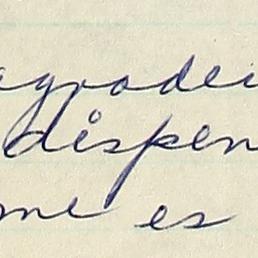 agradei
dispen
me es